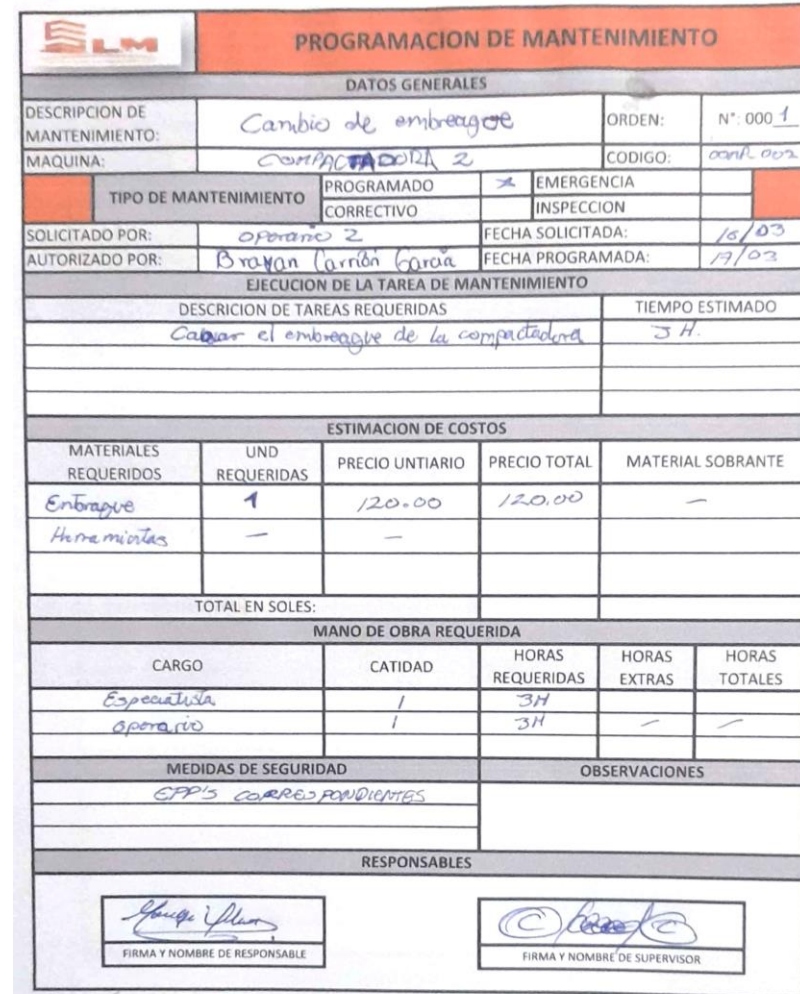 SLM
PROGRAMACION DE MANTENIMIENTO
DATOS GENERALES
DESCRIPCION DE MANTENIMIENTO: Cambio de embreague ORDEN: N°: 000 1
MAQUINA: COMPACTADORA 2 CODIGO: COMP. 002
TIPO DE MANTENIMIENTO PROGRAMADO X EMERGENCIA
CORRECTIVO INSPECCION
SOLICITADO POR: Operario 2 FECHA SOLICITADA: 16/03
AUTORIZADO POR: Brayan Carrión García FECHA PROGRAMADA: 17/03
EJECUCION DE LA TAREA DE MANTENIMIENTO
DESCRICION DE TAREAS REQUERIDAS TIEMPO ESTIMADO
el embreague de la compactadora 3 H.
ESTIMACION DE COSTOS
MATERIALES REQUERIDOS UND REQUERIDAS PRECIO UNTIARIO PRECIO TOTAL MATERIAL SOBRANTE
Enbrague 1 120.00 120.00 —
Herramientas — —
TOTAL EN SOLES:
MANO DE OBRA REQUERIDA
CARGO CATIDAD HORAS REQUERIDAS HORAS EXTRAS HORAS TOTALES
Especialista 1 3H
operario 1 3H — —
MEDIDAS DE SEGURIDAD OBSERVACIONES
EPP'S CORRESPONDIENTES
RESPONSABLES
FIRMA Y NOMBRE DE RESPONSABLE FIRMA Y NOMBRE DE SUPERVISOR